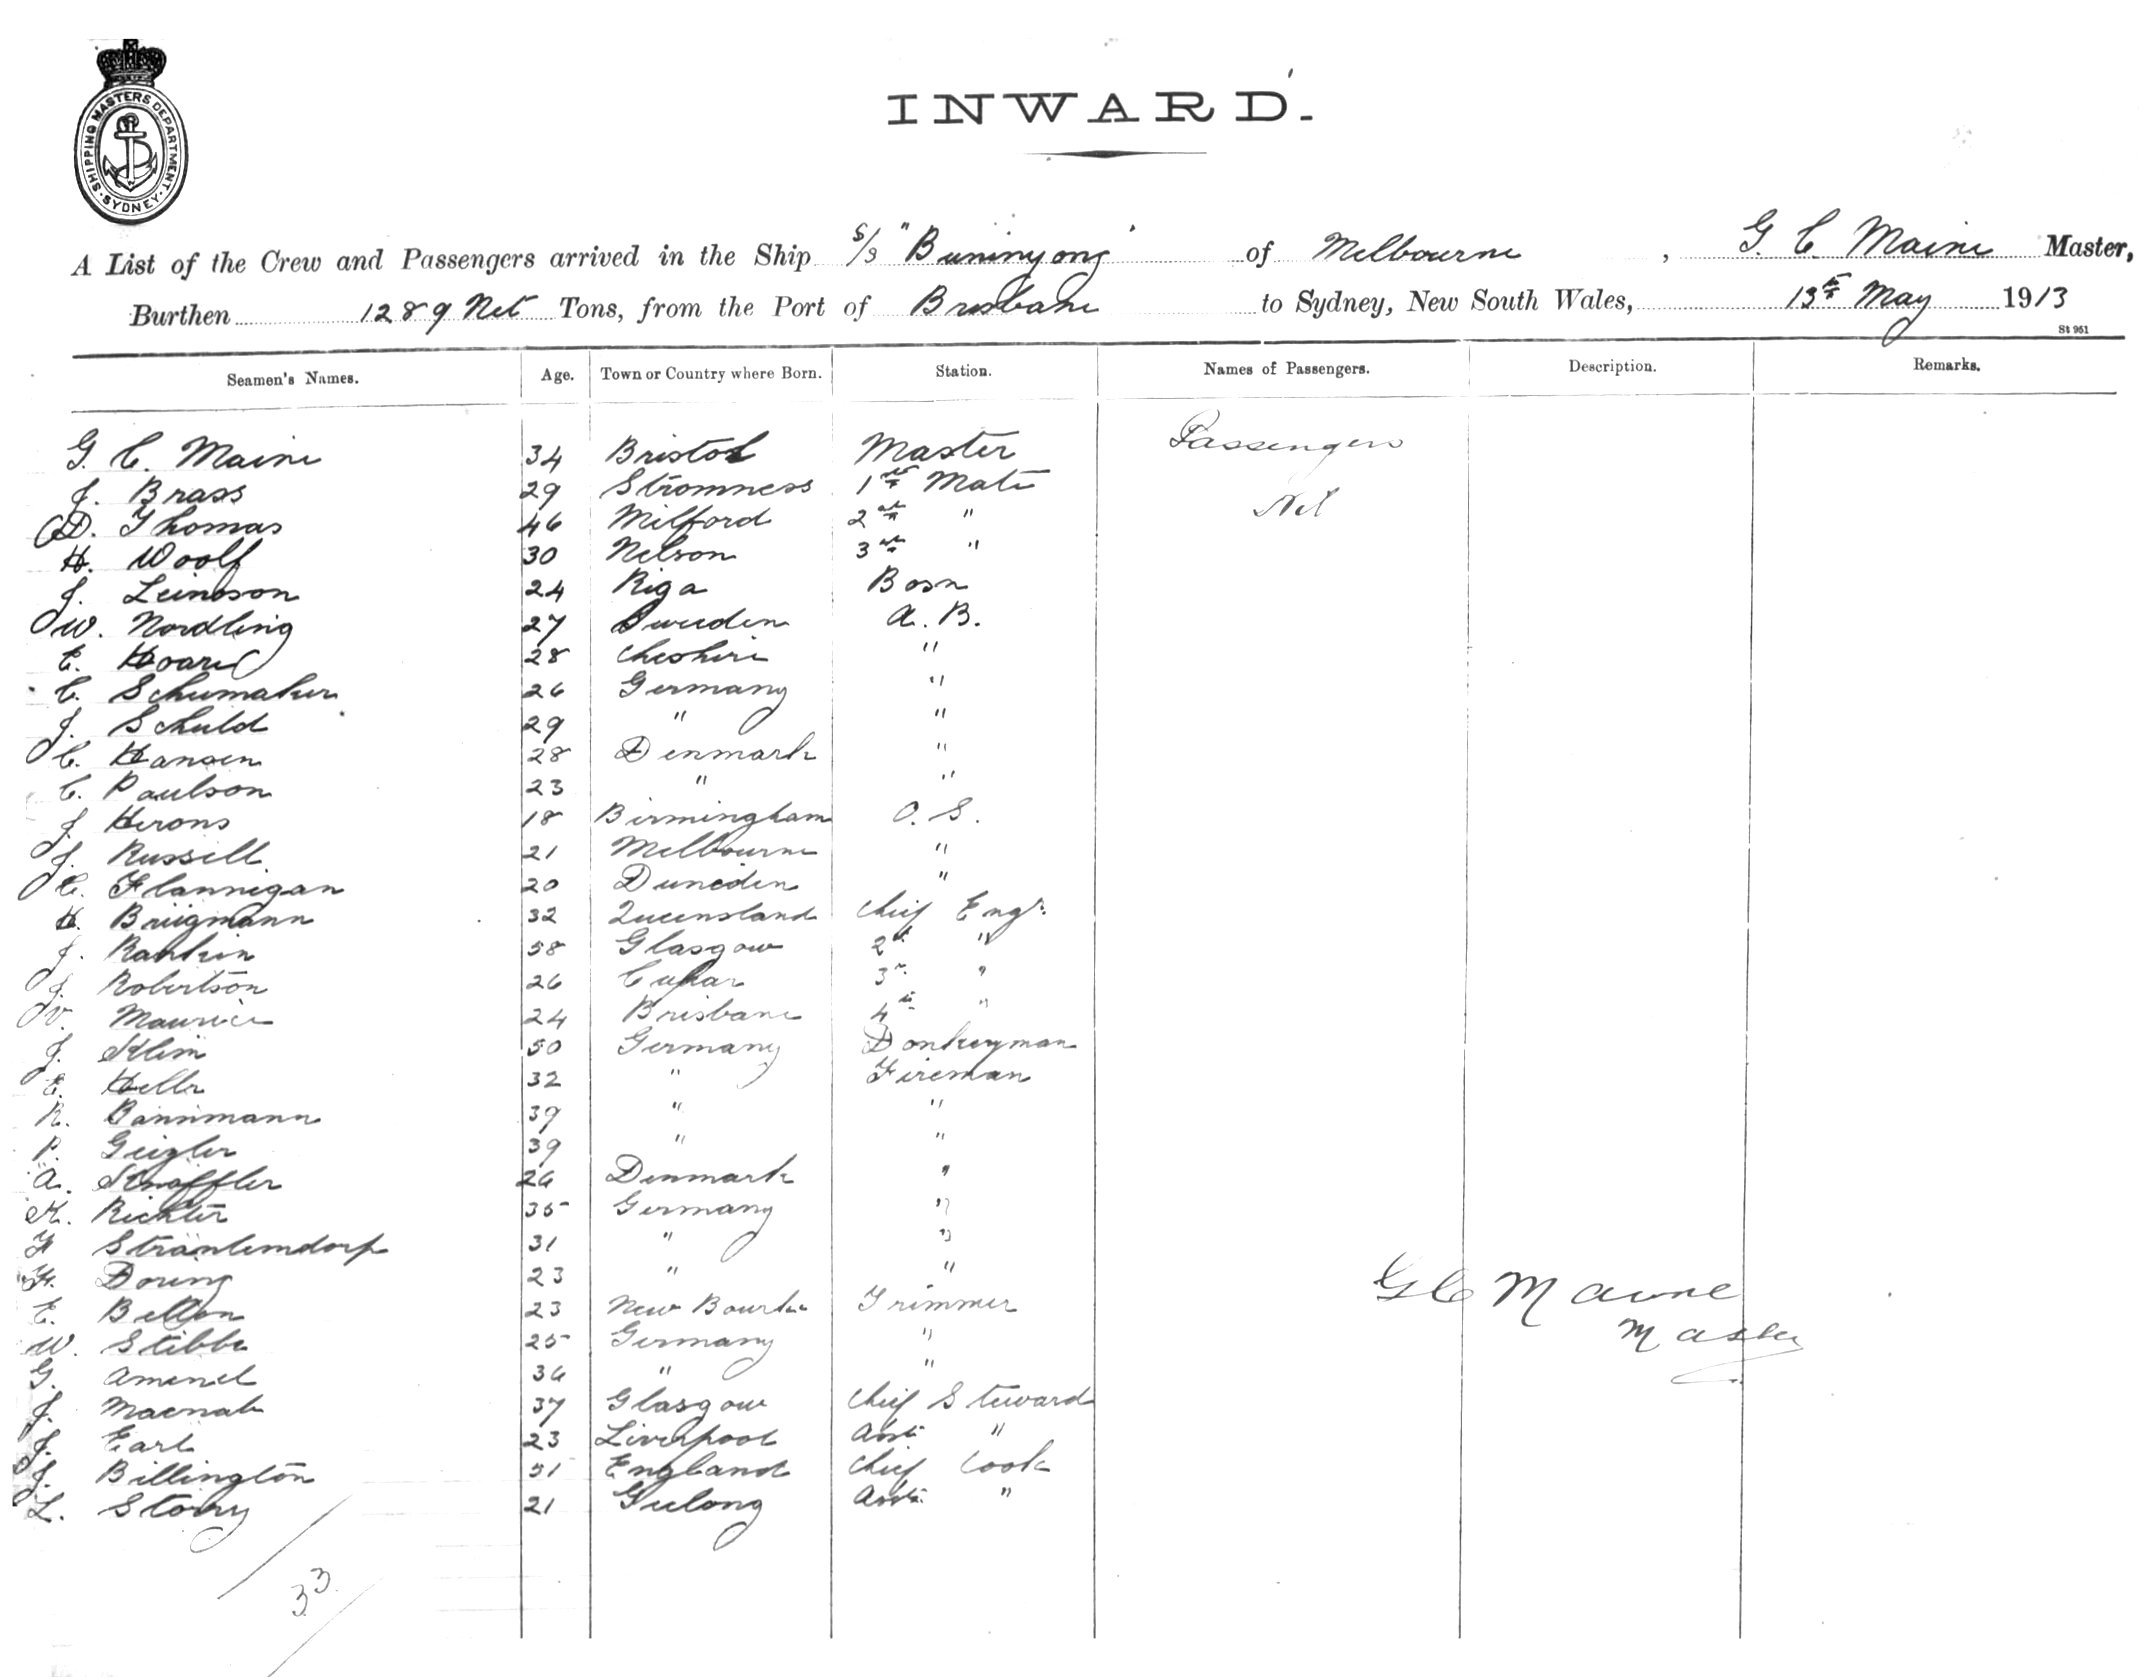 SHIPPING MASTERS DEPARTMENT · SYDNEY ·
INWARD.
A List of the Crew and Passengers arrived in the Ship S/S "Buninyong" of Melbourne, G. C. Maine Master,
Burthen 1289 Net Tons, from the Port of Brisbane to Sydney, New South Wales, 13th May 1913
St 951
Seamen's Names. Age. Town or Country where Born. Station. Names of Passengers. Description. Remarks.
G. C. Maine 34 Bristol Master Passengers
J. Brass 29 Stromness 1st Mate Nil
D. Thomas 46 Milford 2nd "
H. Woolf 30 Nelson 3rd "
J. 24 Riga Bosn
W. Nordling 27 Sweden A. B.
E. Hoare 28 Cheshire "
C. Schumaker 26 Germany "
J. Schuld 29 " "
C. Hansen 28 Denmark "
C. Paulson 23 " "
J. Herons 18 Birmingham O. S.
J. Russell 21 Melbourne "
C. Flannigan 20 Dunedin "
H. Brüigmann 32 Queensland Chief Engr.
J. Rankin 58 Glasgow 2nd "
J. Robertson 26 Cupar 3r. "
V. Maurice 24 Brisbane 4th "
J. Klim 50 Germany Donkeyman
E. Heller 32 " Fireman
R. 39 " "
P. Geizler 39 " "
A. Knoffler 26 Denmark "
K. Richter 35 Germany "
F 31 " "
F. Doring 23 " "
E. Bellon 23 New Trimmer
W. Stibbe 25 Germany "
G. Amend 36 " "
J. Macnab 37 Glasgow Chief Steward
J. Earl 23 Liverpool Asst. "
J. Billington 51 England Chief Cook
L. Story 21 Geelong Asst. "
G C Maine
Master
33